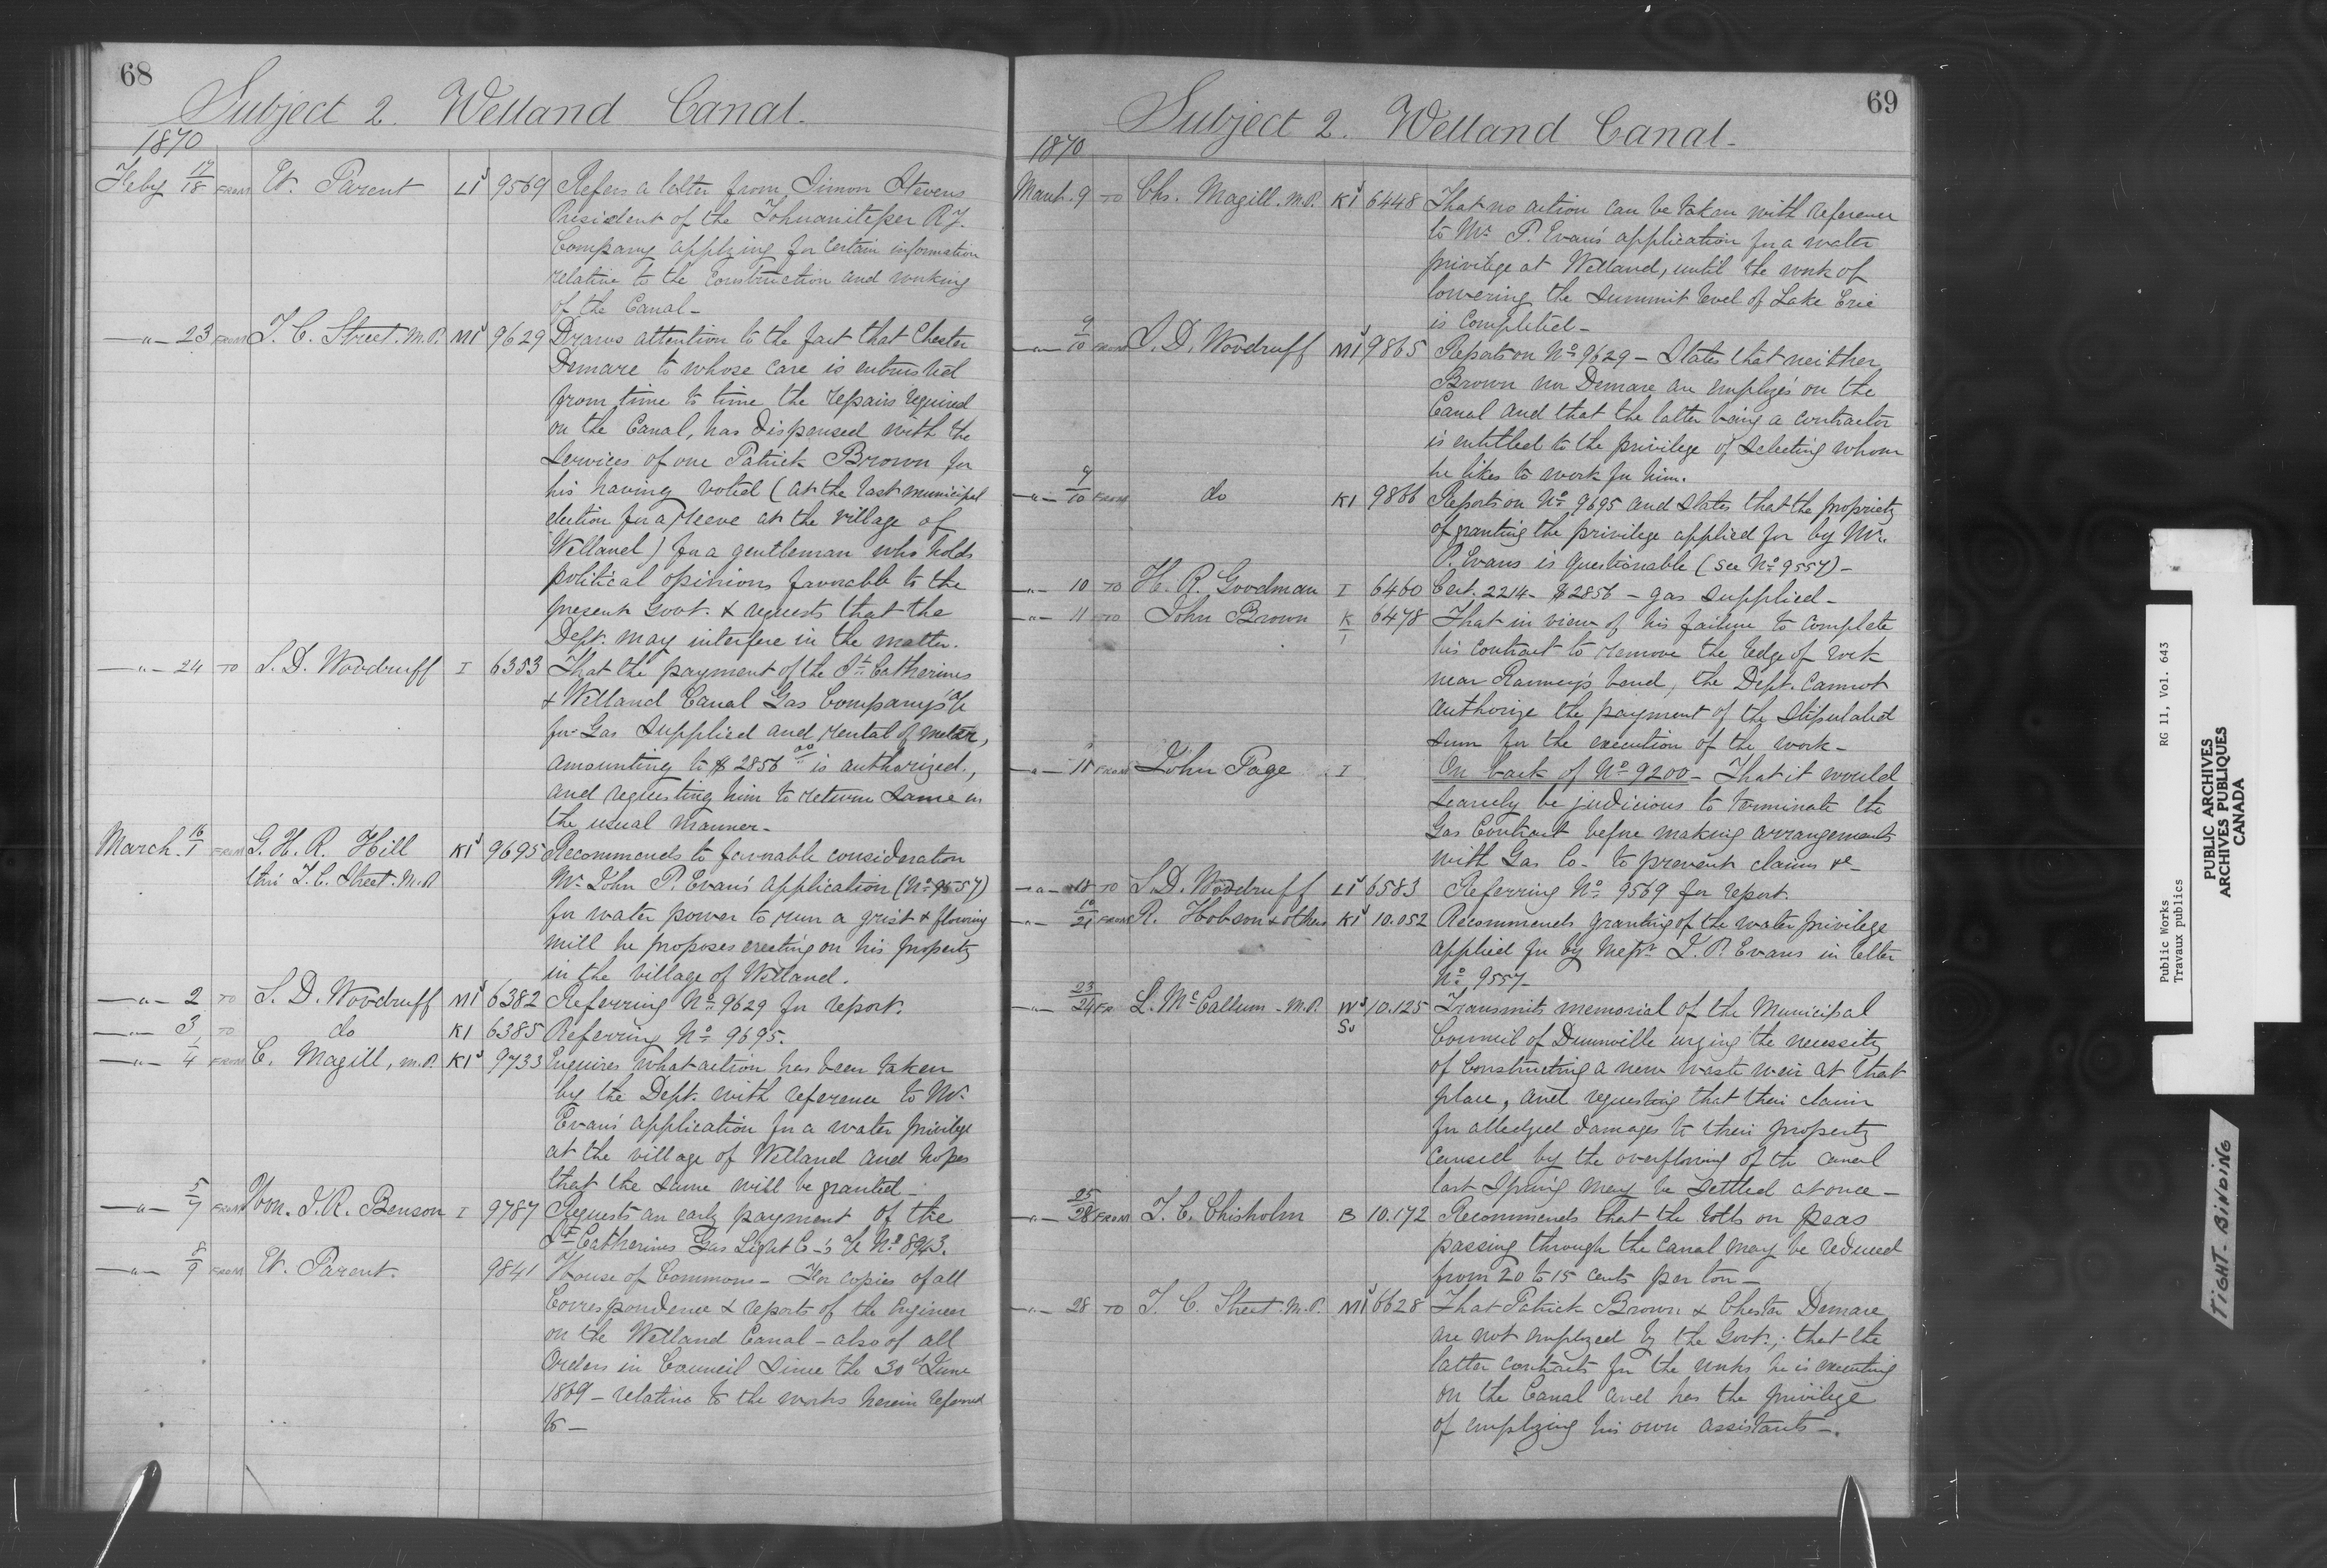 68
Subject 2. Welland Canal.
1870
Feby 17/18 FROM Et. Parent L1 9569 Refers a letter from Simon Stevens
President of the Tehuantepec Ry.
Company applying for certain information
relative to the construction and working
of the Canal—
—"— 23 FROM T. C. Street. M.P. M1 9629 Draws attention to the fact that Chester
Demare to whose care is entrusted
from time to time the repairs required
on the Canal, has dispensed with the
services of one Patrick Brown for
his having voted (at the last municipal
election for a Reeve at the village of
Welland) for a gentleman who holds
political opinions favorable to the
present Govt. & requests that the
Dept. may interfere in the matter.
—"— 24 TO S. D. Woodruff I 6353 That the payment of the St. Catherines
& Welland Canal Gas Company's a/c
for Gas supplied and rental of meter,
amounting to $2856 00 is authorized,
and requesting him to return same in
the usual manner—
March 16/1 FROM G. H. R. Hill K1 9695 Recommends to favorable consideration
thro' T. C. Street. M.P. Mr. John P. Evan's application (No. 9557)
for water power to run a grist & flouring
mill he proposes erecting on his property
in the village of Welland.
—"— 2 TO S. D. Woodruff M1 6382 Referring No. 9629 for report.
—"— 3 TO do K1 6385 Referring No. 9695.
—"— 1/4 FROM C. Magill, M.P. K1 9733 Enquires what action has been taken
by the Dept. with reference to Mr.
Evan's application for a water privilege
at the village of Welland and hopes
that the same will be granted—
—"— 5/7 FROM Hon. J. R. Benson I 9787 Requests an early payment of the
St. Catherines Gas Light Co's a/c No. 8943.
—"— 8/9 FROM Et. Parent. 9841 House of Commons— For copies of all
Correspondence & reports of the Engineer
on the Welland Canal — also of all
Orders in Council since the 30th June
1869 — relative to the works herein referred
to—
69
Subject 2. Welland Canal—
1870
March 9 TO Chs. Magill. M.P. K1 6448 That no action can be taken with reference
to Mr. P. Evan's application for a water
privilege at Welland, until the work of
lowering the summit level of Lake Erie
is completed—
—"— 9/10 FROM S. D. Woodruff M1 9865 Reports on No. 9629 — States that neither
Brown nor Demare are employés on the
Canal and that the latter being a contractor
is entitled to the privilege of selecting whom
he likes to work for him.
—"— 9/10 FROM do K1 9866 Reports on No. 9695 and states that the propriety
of granting the privilege applied for by Mr.
P. Evans is questionable (see No. 9557)—
—"— 10 TO H. R. Goodman I 6460 Cert. 2214— $2856 — gas supplied—
—"— 11 TO John Brown K/1 6478 That in view of his failure to complete
his contract to remove the ledge of rock
near Ramey's bend, the Dept. cannot
authorize the payment of the stipulated
sum for the execution of the work—
—"— 11 FROM John Page I On back of No. 9200— That it would
scarcely be judicious to terminate the
Gas Contract before making arrangements
with Gas Co— to prevent claims &c—
—"— 18 TO S. D. Woodruff L1 6583 Referring No. 9569 for report.
—"— 16/21 FROM R. Hobson & others K1 10.052 Recommends granting of the water privilege
applied for by Messrs. J. P. Evans in letter
No. 9557—
—"— 23/24 FR L. McCallum — M.P. W Sv 10.125 Transmits memorial of the Municipal
Council of Dunnville urging the necessity
of constructing a new waste weir at that
place, and requesting that their claim
for alledged damages to their property
caused by the overflowing of the canal
last Spring may be settled at once—
—"— 25/28 FROM T. C. Chisholm B 10.172 Recommends that the tolls on peas
passing through the canal may be reduced
from 20 to 15 cents per ton—
—"— 28 TO T. C. Street. M.P. M1 6628 That Patrick Brown & Chester Demare
are not employed by the Govt.; that the
latter contracts for the works he is executing
on the Canal and has the privilege
of employing his own assistants—.
Public Works RG 11, Vol. 643
Travaux publics
PUBLIC ARCHIVES
ARCHIVES PUBLIQUES
CANADA
TIGHT-BINDING